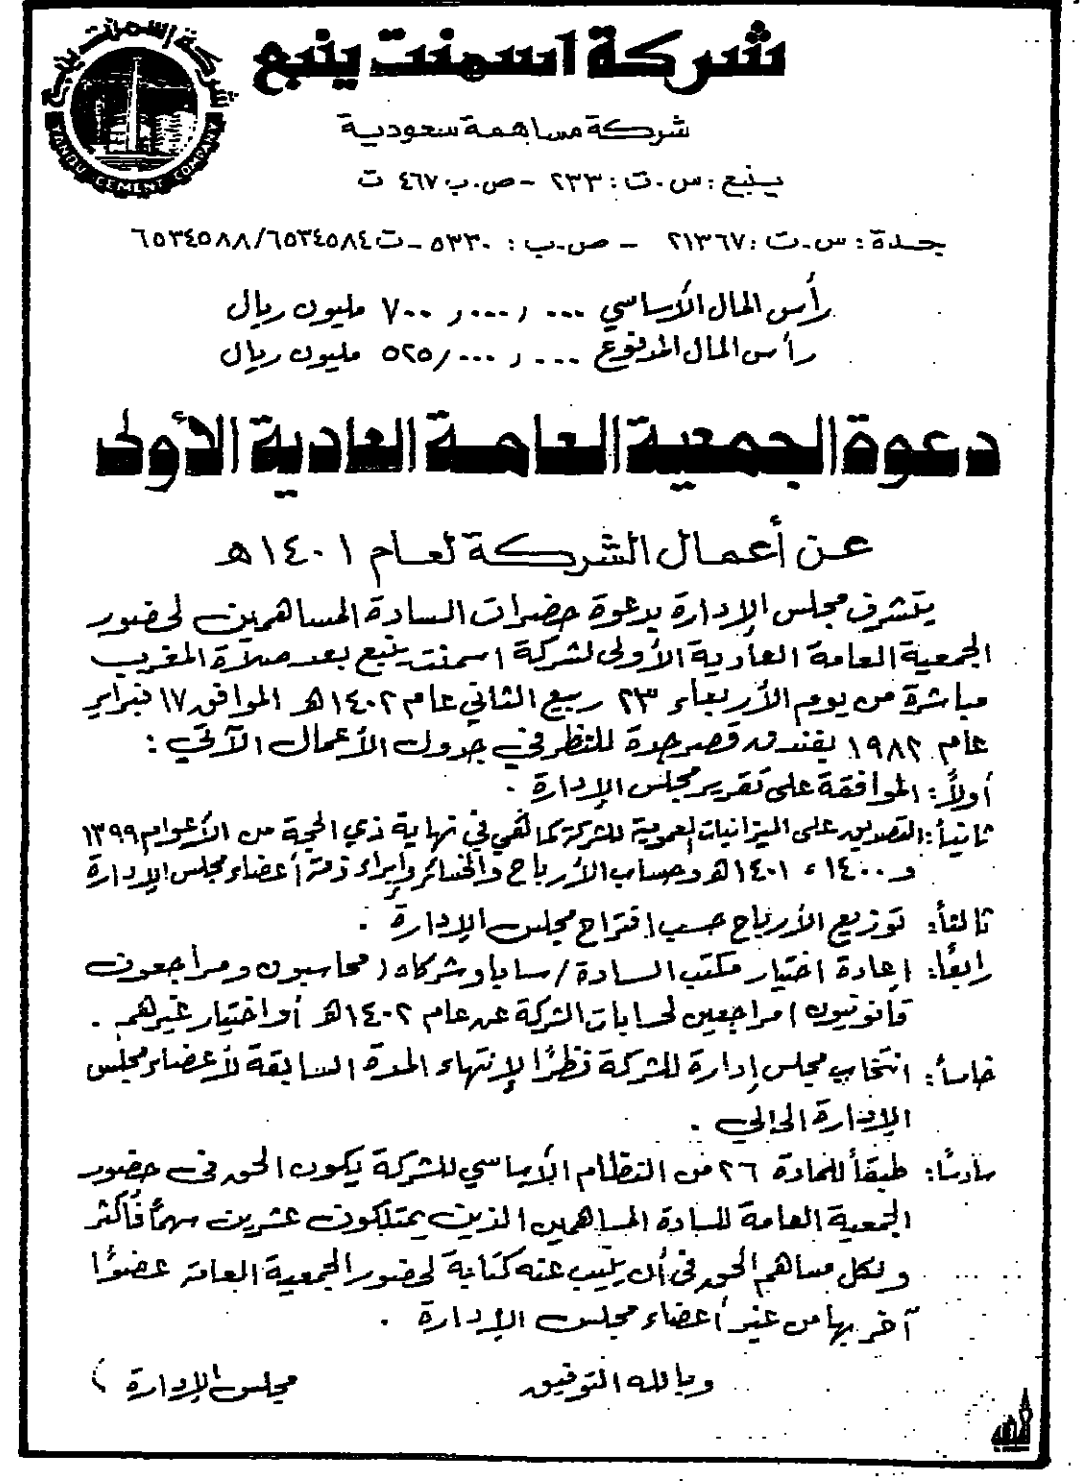 شركة اسمنت ينبع
YANBU CEMENT COMPANY
شركة مساهمة سعودية
ينبع : س.ت : ٢٣٣ - ص.ب ٤٦٧ ت
جدة : س.ت : ٢١٣٦٧ - ص.ب : ٥٣٣٠ - ت ٦٥٣٤٥٨٨/٦٥٣٤٥٨٤
رأس المال الأساسي ٧٠٠,٠٠٠,٠٠٠ مليون ريال
رأس المال المدفوع ٥٢٥/٠٠٠,٠٠٠ مليون ريال
دعوة الجمعية العامة العادية الأولى
عن أعمال الشركة لعام ١٤٠١هـ
يتشرف مجلس الإدارة بدعوة حضرات السادة المساهمين لحضور
الجمعية العامة العادية الأولى لشركة اسمنت ينبع بعد صلاة المغرب
مباشرة من يوم الأربعاء ٢٣ ربيع الثاني عام ١٤٠٢هـ الموافق ١٧ فبراير
عام ١٩٨٢ بفندق قصر جدة للنظر في جدول الأعمال الآتي :
أولاً : الموافقة على تقرير مجلس الإدارة .
ثانياً : التصديق على الميزانيات العمومية للشركة كما هي في نهاية ذي الحجة من الأعوام ١٣٩٩
و ١٤٠٠ ، ١٤٠١هـ وحساب الأرباح والخسائر وإبراء ذمة أعضاء مجلس الإدارة
ثالثاً : توزيع الأرباح حسب اقتراح مجلس الإدارة .
رابعاً : إعادة اختيار مكتب السادة / سابا وشركاه (محاسبون ومراجعون
قانونيون) مراجعين لحسابات الشركة عن عام ١٤٠٢هـ أو اختيار غيرهم .
خامساً : انتخاب مجلس إدارة للشركة نظرًا لإنتهاء المدة السابقة لأعضاء مجلس
الإدارة الحالي .
سادسًا : طبقاً للمادة ٢٦ من النظام الأساسي للشركة يكون الحق في حضور
الجمعية العامة للسادة المساهمين الذين يمتلكون عشرين سهماً فأكثر
ولكل مساهم الحق في أن ينيب عنه كتابة لحضور الجمعية العامة عضوًا
آخر بها من غير أعضاء مجلس الإدارة .
وبالله التوفيق
مجلس الإدارة